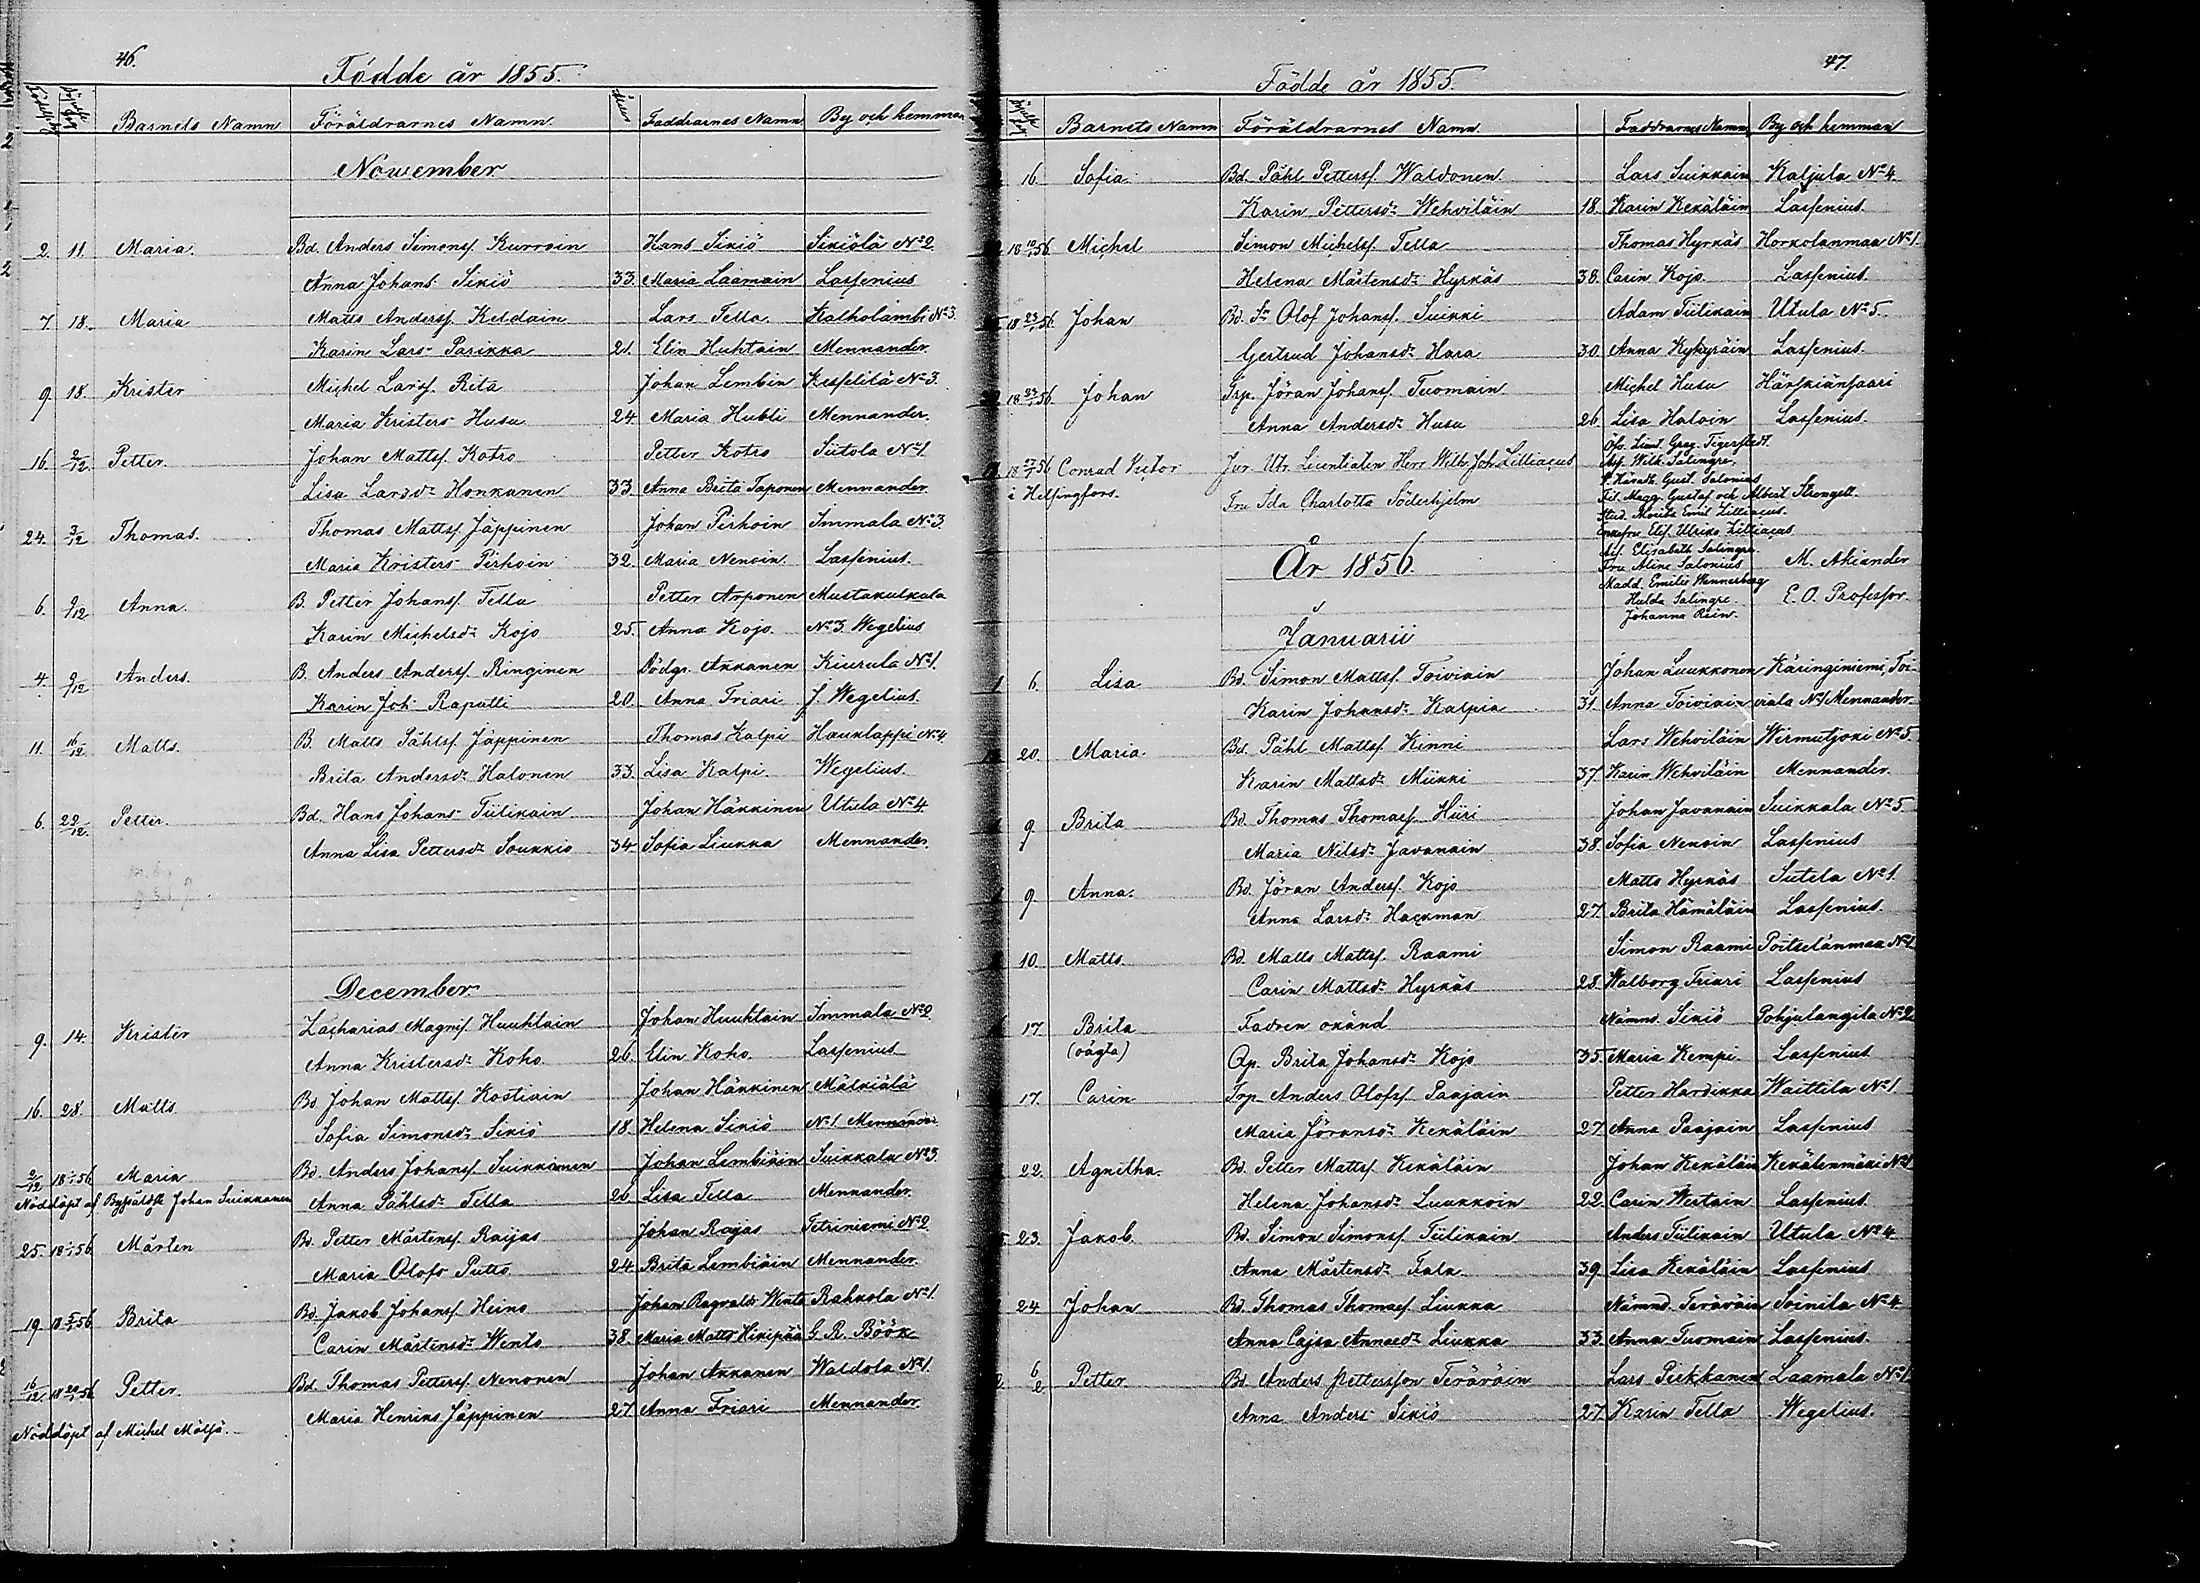 46.
Födde år 1855.
Födelsedag Döpelsedag Barnets Namn Föräldrarnes Namn. Ålder Faddrarnes Namn By och hemman
November
2. 11. Maria. Bd. Anders Simonss. Kurvoin Hans Sikiö Sikiölä No 2
Anna Johans Sikiö 33. Maria Laamain Lassenius
7 18. Maria Matts Anderss. Keldain Lars Tella Katholambi No 3.
Karin Lars Parikka 21. Elin Huhtain Mennander.
9. 18. Krister Michel Larss. Ritä Johan Lembin Kesselilä No 3.
Maria Kristers Husu 24. Maria Hubli Mennander.
16. 2/12 Petter. Johan Mattss. Kotro Petter Kotro Siitola No 1.
Lisa Larsdr Honkanen 33. Anna Brita Taponen Mennander
24. 3/12 Thomas. Thomas Mattss. Jäppinen Johan Pirhoin Immala No 3
Maria Kristers Pirhoin 32. Maria Nenoin. Lassenius.
6. 9/12 Anna. B. Petter Johanss. Tella Petter Arponen Mustakulkula
Karin Michelsdr Kojo 25. Anna Kojo. No 3. Wegelius
4. 9/12 Anders. B. Anders Anderss. Ringinen Dödgr. Akkanen Kiurula No 1.
Karin Joh. Rapatti 20. Anna Friari J. Wegelius.
11. 16/12 Matts. B. Matts Påhlss. Jäppinen Thomas Kalpi Hauklappi No 4
Brita Andersdr Halonen 33. Lisa Kalpi Wegelius.
6. 22/12. Petter. Bd. Hans Johans Tiilikain Johan Häkkinen Utula No 4
Anna Lisa Pettersdr Soukkio 34. Sofia Liukka Mennander.
December.
9. 14. Krister Zacharias Magniss. Huuhtain Johan Huuhtain Immala No 2
Anna Kristersdr Koho. 26. Elin Koho. Lassenius
16. 28. Matts Bd Johan Mattss. Kostiain Johan Häkkinen Mälkiälä
Sofia Simonsdr Sikiö 18. Helena Sikiö No 1 Mennander
2/12 18 1/1 56 Maria Bd. Anders Johanss. Suikkanen Johan Lembiäin Suikkala No 3.
Nöddöpt af Johan Suikkanen Anna Påhlsdr Tella 26. Lisa Tella Mennander.
25. 18 1/1 56 Mårten Bd. Petter Mårtenss. Raijas Johan Raijas Tetriniemi No 2
Maria Olofs Putto 24. Brita Lembiäin Mennander.
19. 18 5/1 56 Brita Bd. Jakob Johanss. Heino Johan Ragvalds Wento Rahkola No 1.
Carin Mårtensdr Wento 38. Maria Matts Hikipää G. R. Böök
16/12 18 20/1 56 Petter. Bd. Thomas Petterss. Nenonen Johan Akkanen Waldola No 1.
Maria Henriks Jäppinen 27. Anna Friari Mennander.
Nöddöpt af Michel Mälsä.
47.
Födde år 1855.
Barnets Namn Föräldrarnes Namn. Faddrarnes Namn By och hemman
16. Sofia. Bd. Påhl Petterss. Waldonen Lars Suikkain Kaljula No 4.
Karin Pettersdr Wehviläin 18. Karin Kekäläin Lassenius.
18 10/1 56 Michel Simon Michelss. Tella Thomas Hyrkäs Horkolanmaa No 1.
Helena Mårtensdr Hyrkäs 38. Carin Kojo Lassenius.
18 23/1 56. Johan Bd. Sn Olof Johanss. Suikki Adam Tiilikain Utula No 5.
Gertrud Johansdr Hara 30. Anna Kykyräin Lassenius.
18 27/1 56. Johan Trp. Jöran Johanss. Tuomain Michel Husu Härskiänsaari
Anna Andersdr Husu 26. Lisa Haloin Lassenius.
18 27/1 56 Conrad Victor Jur. Utr. Licentiaten Herr Wilh. Joh. Lilliacus Öfv. Lieut. Greg. Tigerstedt.
i Helsingfors. Fru Ida Charlotta Söderhjelm Ass. Wilh. Salingre,
Härads. Gust. Salonius
Fil. Magg. Gustaf och Albert Strengell.
Stud. Moritz Emil Lilliacus.
Enkefru Elis. Ulrika Lilliacus
Ass. Elisabeth Salingre.
Fru Aline Salonius M. Akiander
Madd. Emilie Wennerberg
Hulda Salingre. E. O. Professor.
Johanna Rein.
År 1856.
Januarii
6. Lisa Bd. Simon Mattss. Toiviain Johan Luukkonen Käringiniemi, Toi-
Karin Johansdr Kalpia 31. Anna Toiviain viala No 1 Mennander
20. Maria Bd. Påhl Mattss. Kinni Lars Wehviläin Wirmutjoki No 5.
Karin Mattsdr Miikki 37. Karin Wehviläin Mennander.
9 Brita Bd. Thomas Thomass. Hüri Johan Javanain Suikkala No 5
Maria Nilsdr Javanain 38. Sofia Nenoin Lassenius
9. Anna. Bd. Jöran Anderss. Kojo Matts Hyrkäs Sutela No 1.
Anna Larsdr Hackman 27. Brita Hämäläin Lassenius.
10. Matts Bd. Matts Mattss. Raami Simon Raami Poitselänmaa No 1.
Carin Mattsdr Hyrkäs 28. Walborg Friari Lassenius
17. Brita Fadren okänd Nämnd. Sikiö Pohjalangila No 2
(oägta) Qp. Brita Johansdr Kojo 35. Maria Kempi Lassenius
17. Carin Trp. Anders Olofss. Paajain Petter Hardikka Waittila No 1.
Maria Jöransdr Kekäläin 27. Anna Paajain Lassenius
22. Agnitha. Bd. Petter Mattss. Kekäläin Johan Kekäläin Kekälenmäki No 1
Helena Johansdr Luukkoin 22. Carin Wertain Lassenius.
23. Jakob. Bd. Simon Simonss. Tiilikain Anders Tiilikain Utula No 4
Anna Mårtensdr Tala. 39. Lisa Kekäläin Lassenius
24 Johan Bd. Thomas Thomass. Liukka Nämnd. Teräväin Soinila No 4
Anna Cajsa Annasdr Liukka 33. Anna Tuomain Lassenius.
6/2 Petter. Bd. Anders Pettersson Teräväin Lars Pirkkanen Laamala No 1
Anna Anders Sikiö 27. Karin Tella Wegelius.